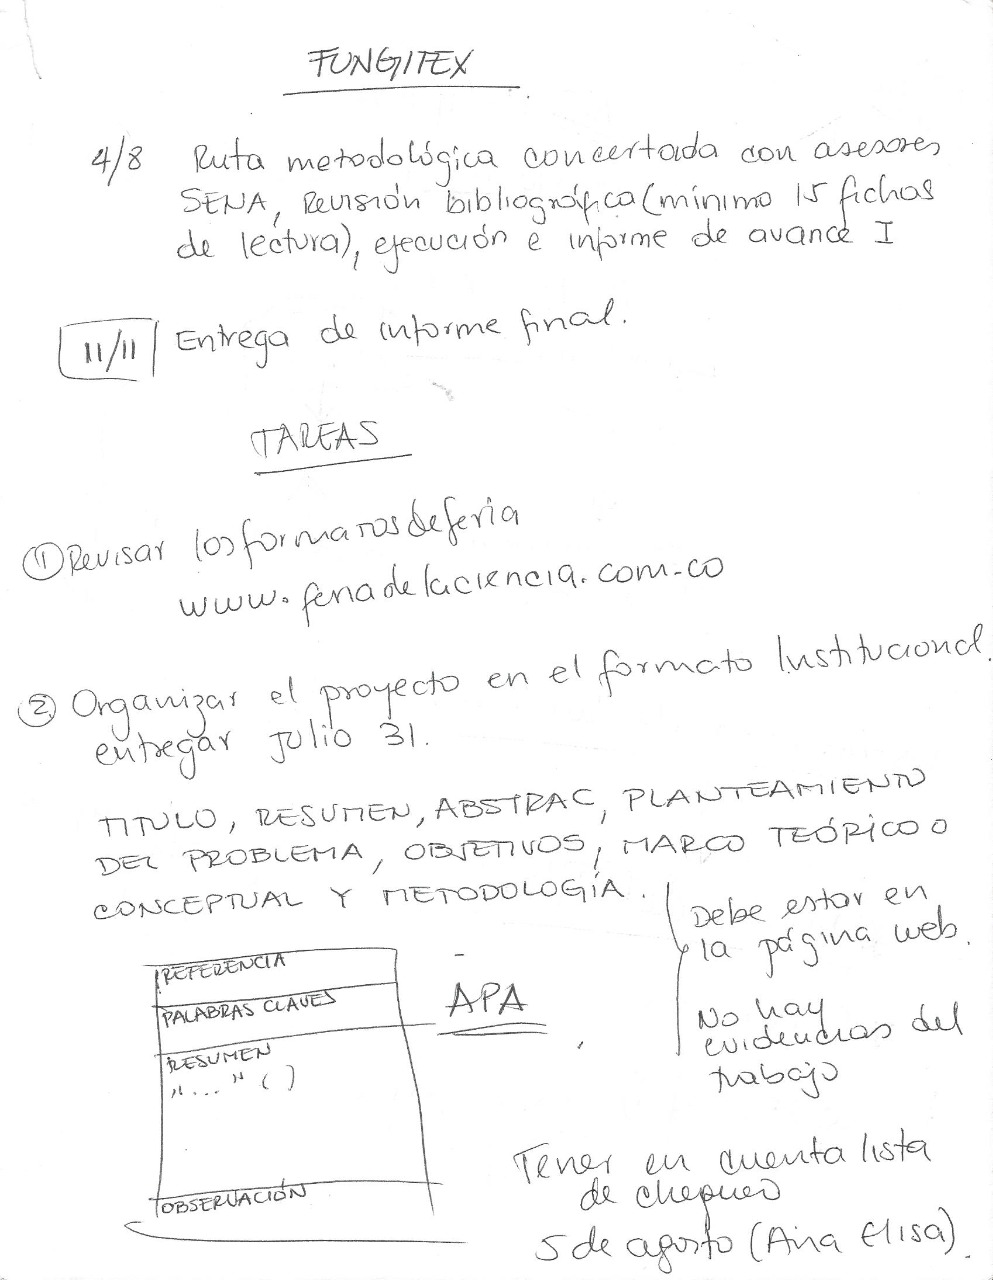 FUNGITEX
4/8 Ruta metodológica concertada con asesores
SENA, Revisión bibliográfica (mínimo 15 fichas
de lectura), ejecución e informe de avance I
11/11 Entrega de informe final.
TAREAS
① Revisar los formatos de feria
www.feriadelaciencia.com.co
② Organizar el proyecto en el formato Institucional.
entregar Julio 31.
TITULO, RESUMEN, ABSTRAC, PLANTEAMIENTO
DEL PROBLEMA, OBJETIVOS, MARCO TEÓRICO O
CONCEPTUAL Y METODOLOGÍA.
Debe estar en
la página web.
No hay
evidencias del
trabajo
REFERENCIA
PALABRAS CLAVES
RESUMEN
"..." ( )
OBSERVACIÓN
APA
Tener en cuenta lista
de chequeo
5 de agosto (Ana Elisa).